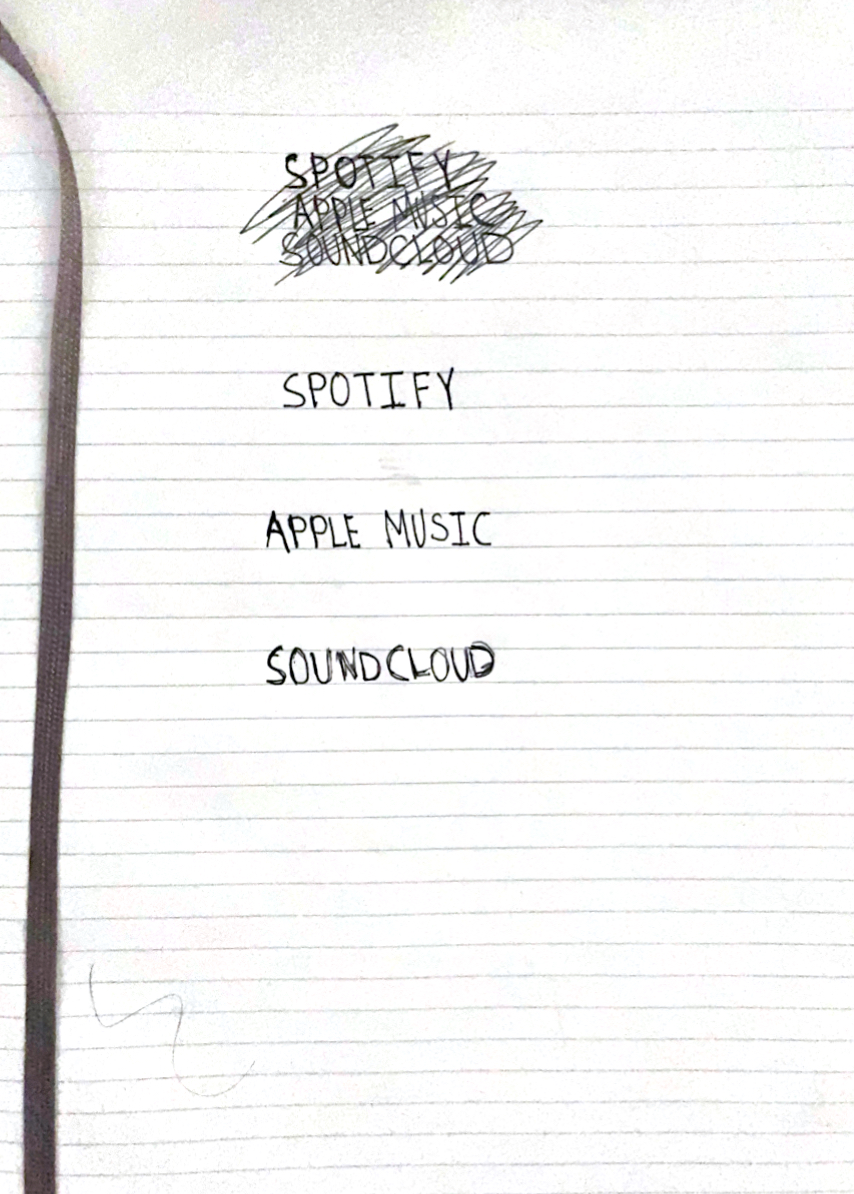 SPOTIFY
APPLE MUSIC
SOUNDCLOUD
SPOTIFY
APPLE MUSIC
SOUNDCLOUD